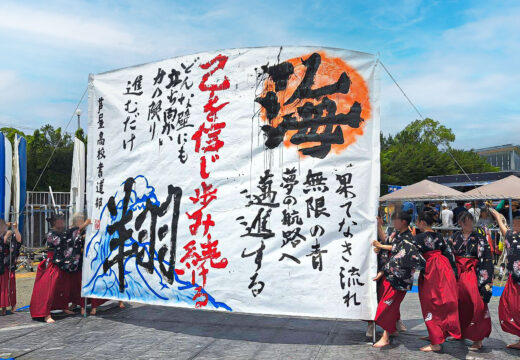 海
果てなき流れ
無限の青
夢の航路へ
邁進する
己を信じ歩み続ける
どんな壁にも
立ち向い
力の限り
進むだけ
翔
書道部